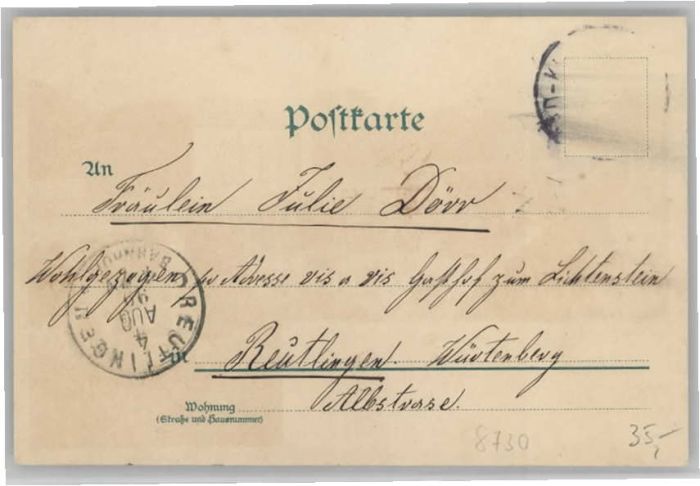 Postkarte
An
Fräulein Julie Dörr
Wohlgezogen pr Adresse vis a vis Gasthof zum Lichtenstein
in Reutlingen. Würtenberg
Albstrase.
Wohnung
(Straße und Hausnummer)
REUTLINGEN
BAHNHOF
4
AUG
8730
35,-